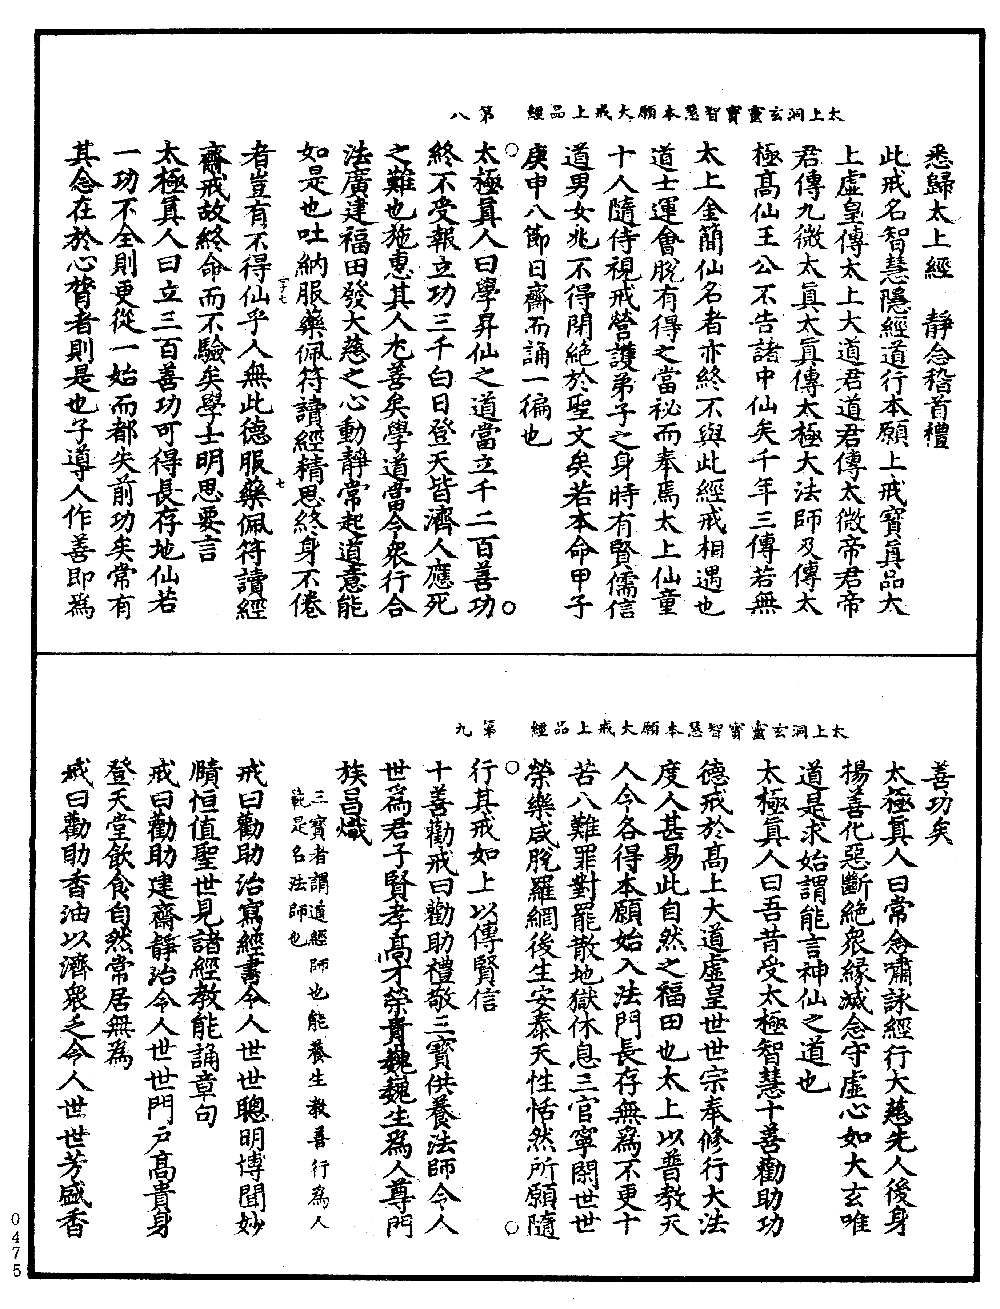 太上洞玄靈寶智慧本願大戒上品經　第八
悉歸太上經　靜念稽首禮
此戒名智慧隱經道行本願上戒寶眞品大
上虛皇傳太上大道君道君傳太微帝君帝
君傳九微太眞太眞傳太極大法師及傳太
極高仙王公不告諸中仙矣千年三傳若無
太上金簡仙名者亦終不與此經戒相遇也
道士運會脫有得之當祕而奉焉太上仙童
十人隨侍視戒營護弟子之身時有賢儒信
道男女兆不得閉絶於聖文矣若本命甲子
庚申八節日齋而誦一徧也
太極眞人曰學昇仙之道當立千二百善功
終不受報立功三千白日登天皆濟人應死
之難也施惠其人尤善矣學道當令衆行合
法廣建福田發大慈之心動靜常起道意能
如是也吐納服藥佩符讀經精思終身不倦
者豈有不得仙乎人無此德服藥佩符讀經
齋戒故終命而不驗矣學士明思要言
太極眞人曰立三百善功可得長存地仙若
一功不全則更從一始而都失前功矣常有
其念在於心膂者則是也子導人作善即爲
太上洞玄靈寶智慧本願大戒上品經　第九
善功矣
太極眞人曰常念嘯詠經行大慈先人後身
揚善化惡斷絶衆緣滅念守虛心如大玄唯
道是求始謂能言神仙之道也
太極眞人曰吾昔受太極智慧十善勸助功
德戒於高上大道虛皇世世宗奉修行大法
度人甚易此自然之福田也太上以普教天
人令各得本願始入法門長存無爲不更十
苦八難罪對罷散地獄休息三官寧閑世世
榮樂咸脫羅網後生安泰天性恬然所願隨
行其戒如上以傳賢信
十善勸戒曰勸助禮敬三寶供養法師令人
世爲君子賢孝高才榮貴巍巍生爲人尊門
族昌熾
三寶者謂道經師也能養生教善行爲人
範是名法師也
戒曰勸助治寫經書令人世世聰明博聞妙
賾恒值聖世見諸經教能誦章句
戒曰勸助建齋靜治令人世世門戶高貴身
登天堂飲食自然常居無爲
戒曰勸助香油以濟衆乏令人世世芳盛香
0475